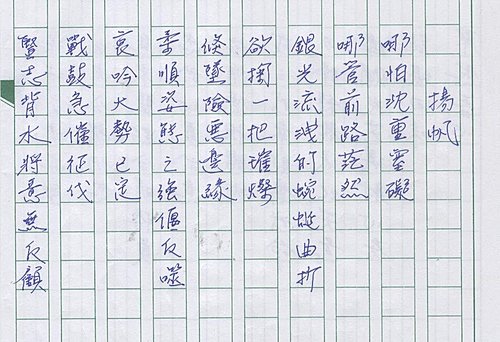 揚帆
哪怕沈重窒礙
哪管前路茫然
銀光流洩的蜿蜒曲折
欲掬一把璀燦
倏墜險惡邊緣
柔順姿態之強偃反噬
哀吟大勢已定
戰鼓急催征伐
志背水將意無反顧